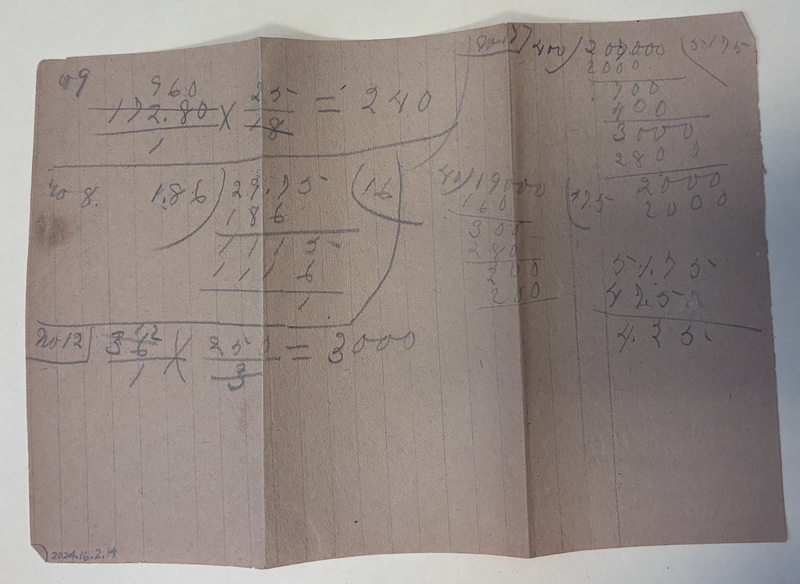 no 9
960
172.80 × 25 = 240
1 18
no 8. 1.86 ) 29.75 ( 16
186
1115
1116
1
no 12 36 12 × 250 = 3000
1 3
400 ) 207000 ( 5175
2000
700
400
3000
2800
2000
2000
80 ) 19000
160
300
280
200
200
51.75
47.50
4.25
2024.16.2.14